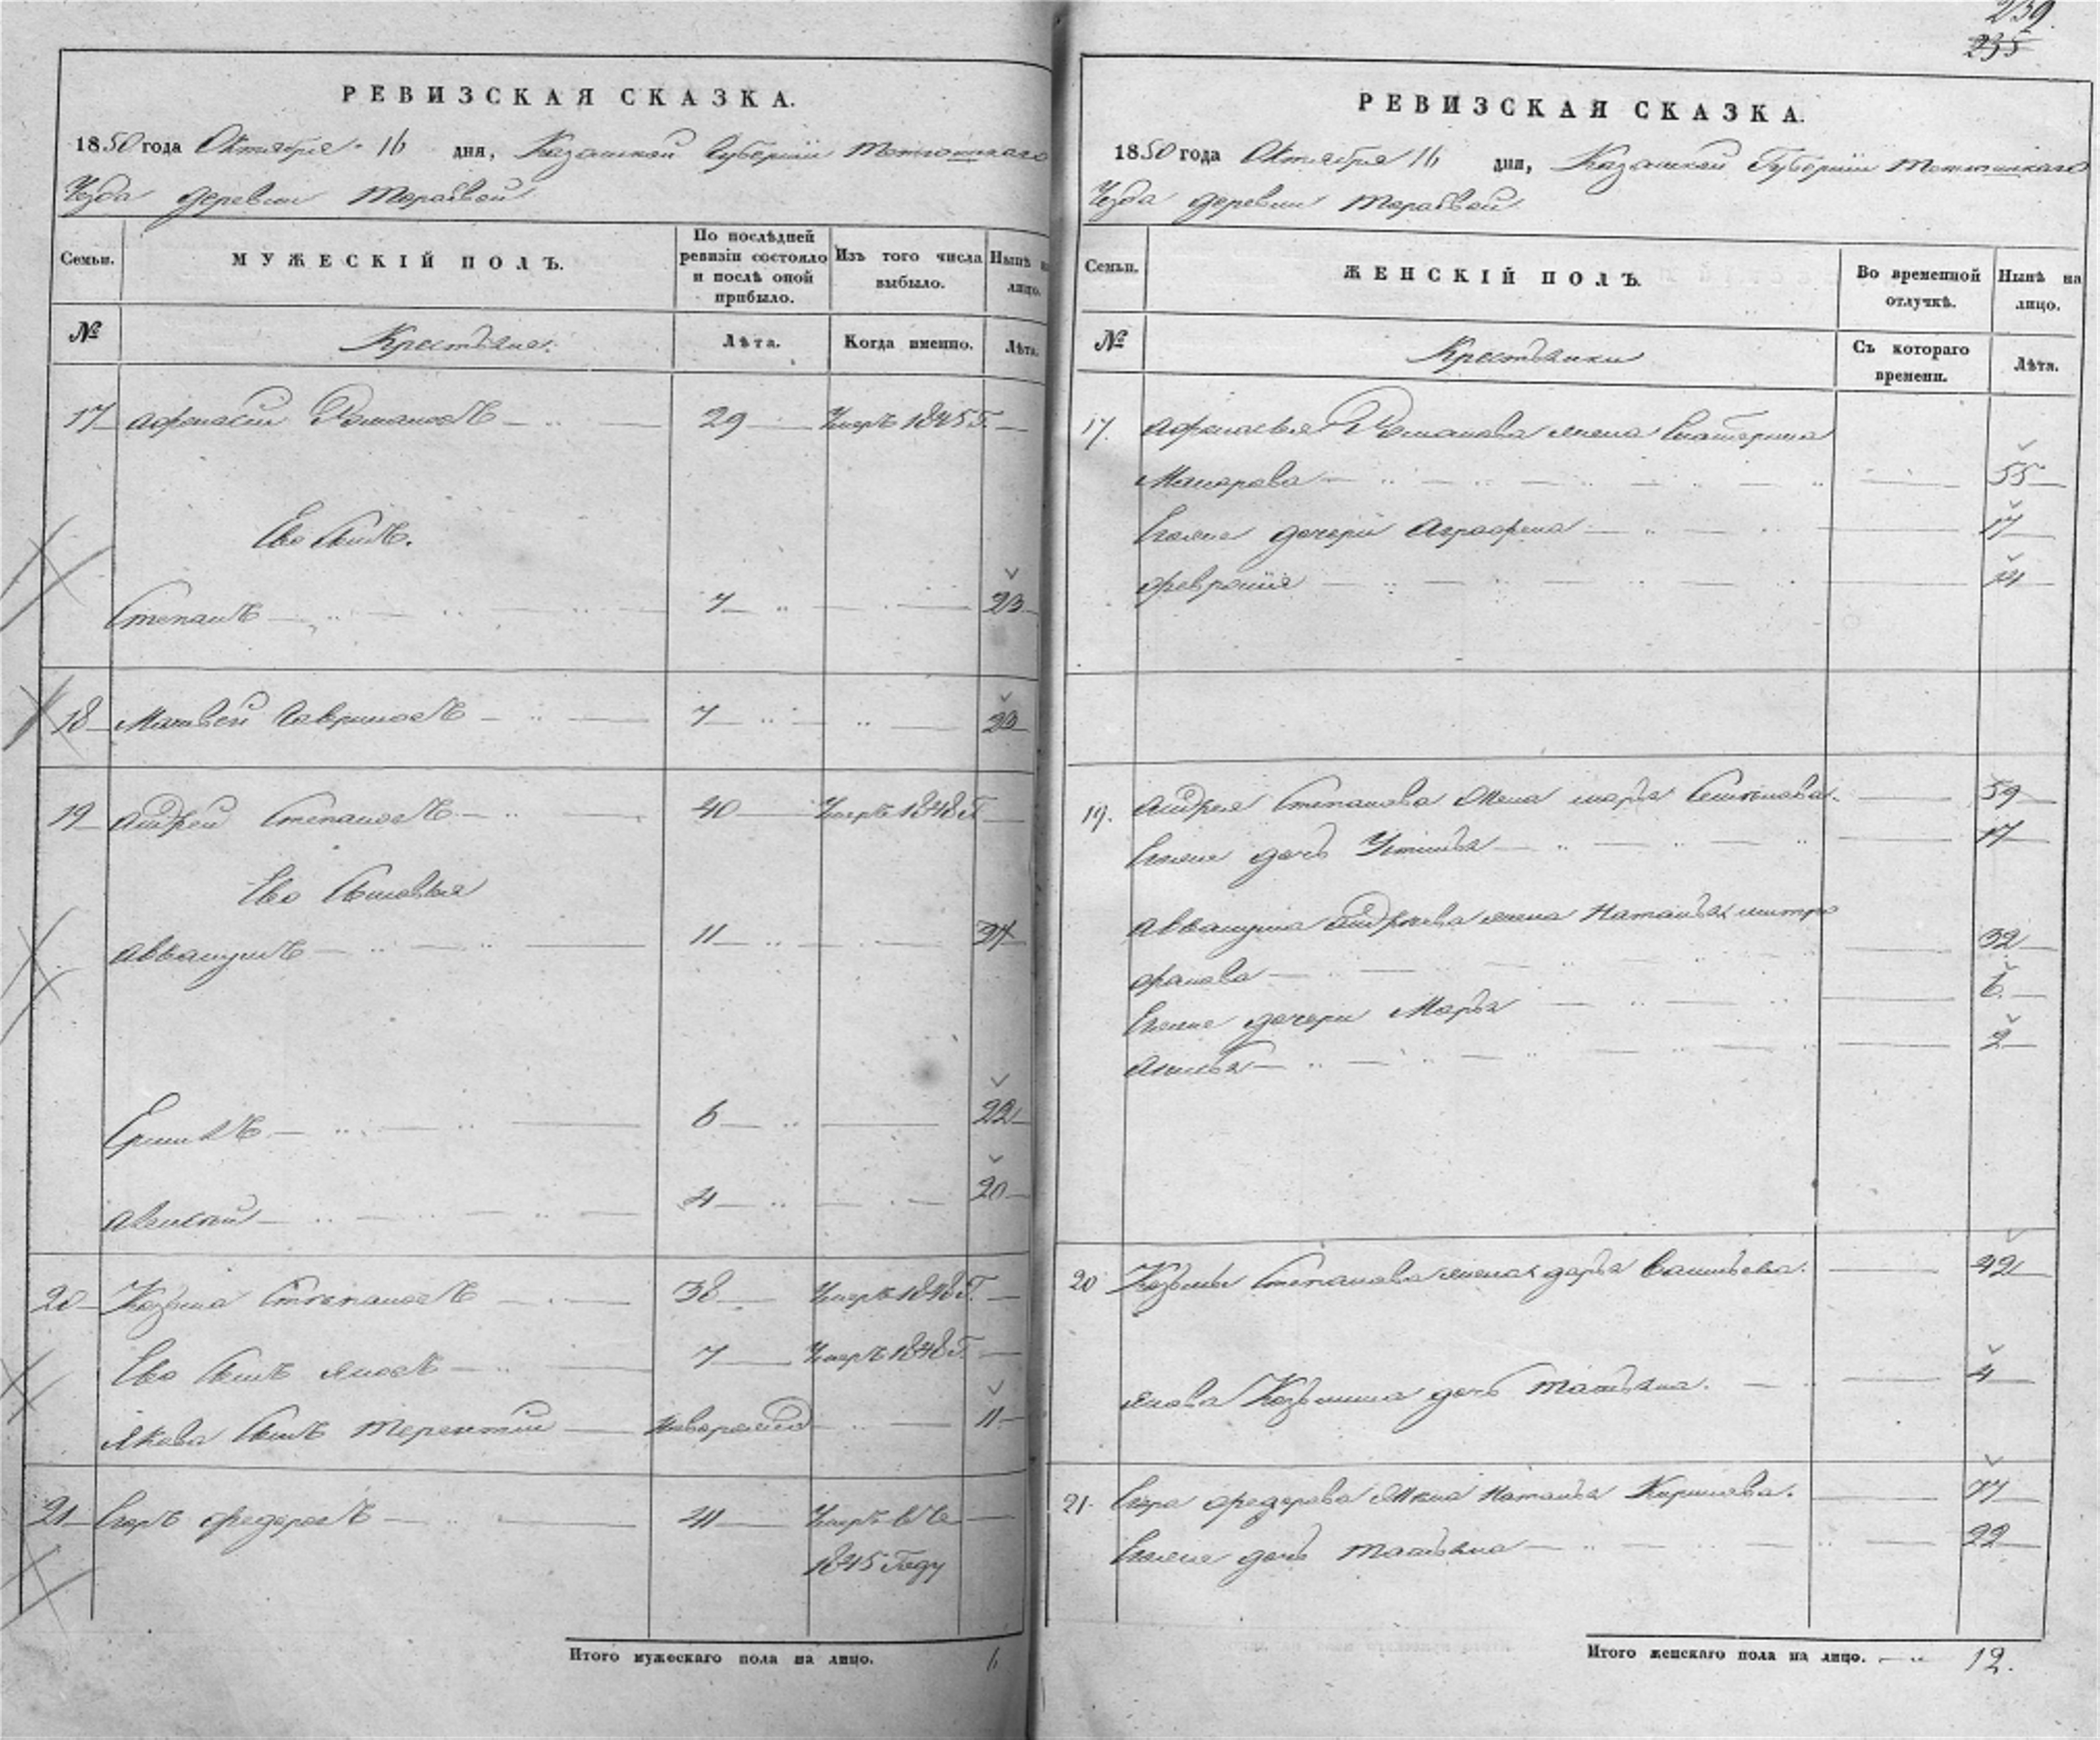 239.
235
РЕВИЗСКАЯ СКАЗКА.
1850 года Октября 16 дня, Казанской Губернии
Уезда деревни
Семьи.
МУЖЕСКІЙ ПОЛЪ.
По послѣдней ревизіи состояло и послѣ оной прибыло.
Изъ того числа выбыло.
Нынѣ на лицо.
№
Крестьяне.
Лѣта.
Когда именно.
Лѣта.
17 Афонасей Романовъ 29 Умеръ 1845 Г.
Ево Сынъ.
Степанъ 7 23
18 Матвей Гавриловъ 7 23
19 Андрей Степановъ 40 Умеръ 1848 Г
Ево Сыновья
Аввакумъ 11 27
6 22
Алексей 4 20
20 Козьма Степановъ 38 Умеръ 1848 Г.
Ево Сынъ Яковъ 7 Умеръ 1848 Г.
Якова Сынъ Терентий Новорожд 11
21 Егоръ Федоровъ 41 Умеръ въ
1845 Году
Итого мужескаго пола на лицо. 6
РЕВИЗСКАЯ СКАЗКА.
1850 года Октября 16 дня, Казанской Губернии
Уезда деревни
Семьи.
ЖЕНСКІЙ ПОЛЪ.
Во временной отлучкѣ.
Нынѣ на лицо.
№
Крестьянки
Съ котораго времени.
Лѣта.
17. Афонасья Романова жена Екатерина
Макарова 55
дочери Аграфена 17
Февронія 14
19. Андрея Степанова жена Марья 59
дочь Устинья 17
Аввакума Андреева жена Наталья Митро
фанова 32
дочери Марья 6
2
20 Козьмы Степанова жена Дарья Васильева. 42
Якова Козьмина дочь Татьяна. 4
21. Егора Федорова жена Наталья Кирилова.
дочь Татьяна 22
Итого женскаго пола на лицо. 12.